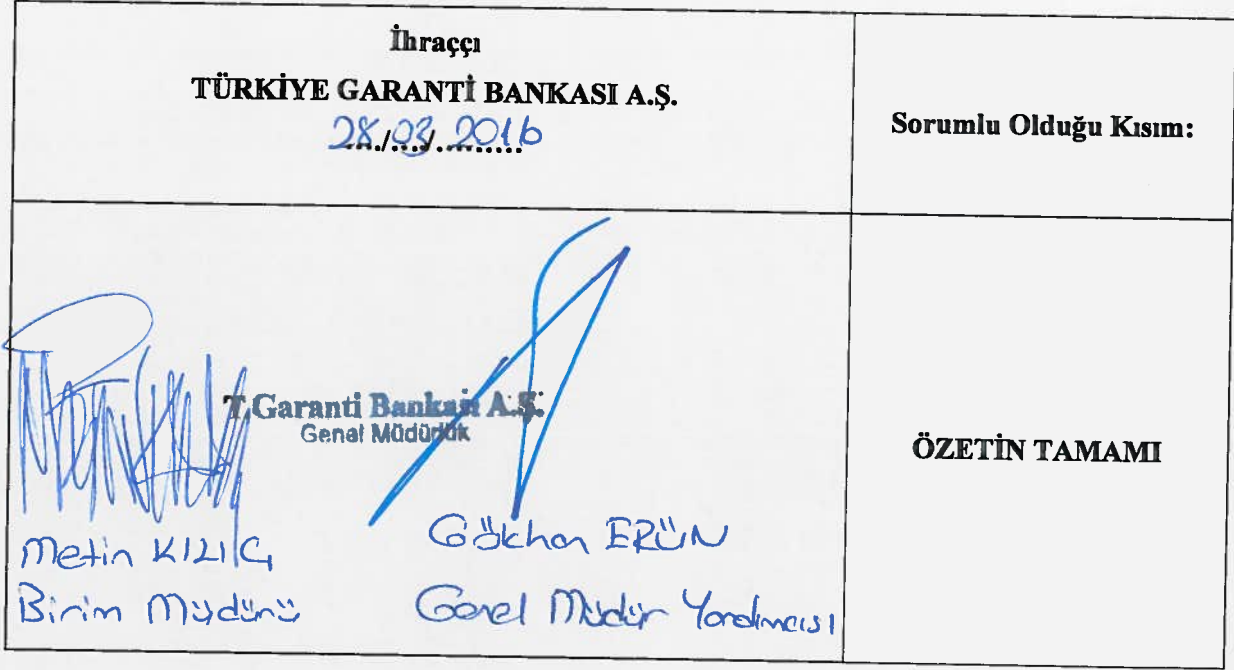 İhraççı
TÜRKİYE GARANTİ BANKASI A.Ş.
28/03/2016
Sorumlu Olduğu Kısım:
T.Garanti Bankası A.Ş.
Genel Müdürlük
ÖZETİN TAMAMI
Metin KILIÇ
Birim Müdürü
Gökhan ERÜN
Genel Müdür Yardımcısı